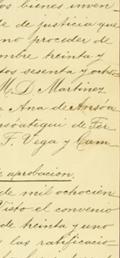 os bienes inven
te de justicia que
no proceder de
mbre treinta y
tos sesenta y ocho
M. D. Martinez
Ana de Ansóa
F. Vega y Cam
aprobacion
de mil ochocien
Visto el convenio
de treinta y uno
las ratificacio